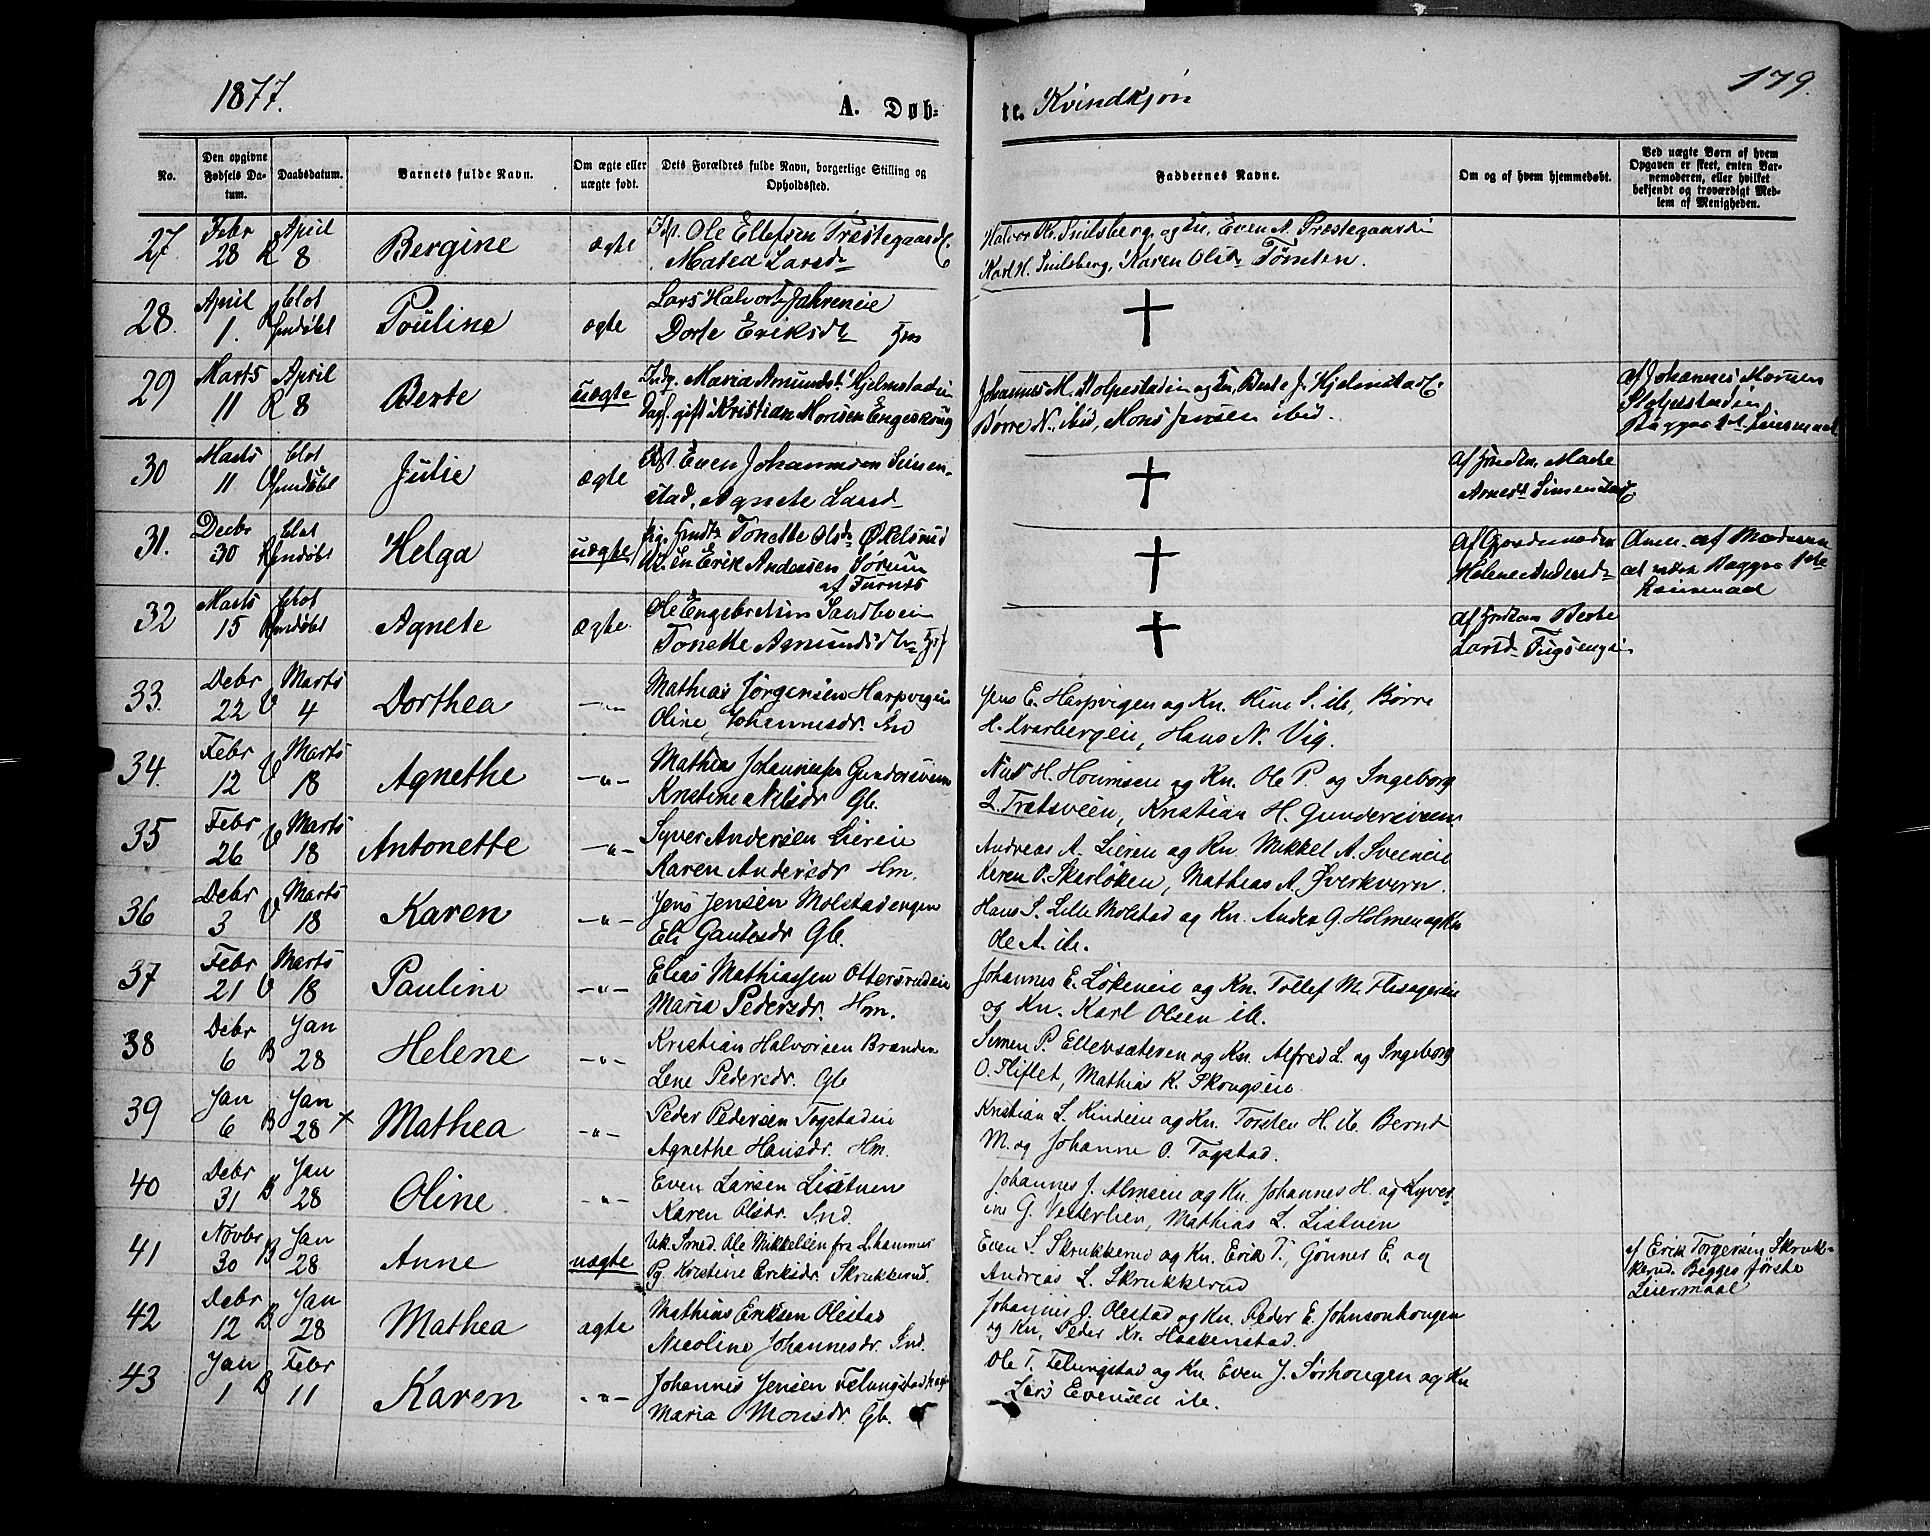 1877.
179.
A. Døb-
te. Kvindkjøn
No.
Den opgivne Fødsels Datum.
Daabsdatum.
Barnets fulde Navn.
Om ægte eller uægte født.
Dets Forældres fulde Navn, borgerlige Stilling og Opholdssted.
Faddernes Navne.
Om og af hvem hjemmedøbt.
Ved uægte Børn af hvem Opgaven er skeet, enten Barnemoderen, eller hvilket bekjendt og troværdigt Medlem af Menigheden.
27. Febr 28 R April 8 Bergine ægte Ole Ellefsen Præstegaards
Matea Larsd
Halvor Snilsberg og Kn, Even A. Præstegaards
Karl H. Snilsberg, Karen Olsdr Tømten.
28. April 1. R blot hmdøbt Pouline ægte Lars Halvors Jahreneie
Dorte Eriksdtr
29 Marts 11 R April 8 Berte uægte Maria Amundsd. Hjelmstadeie
gift Kristian Monsen Engeskoug
Johannes M. Stolpestadeie og Kn, Berte J. Hjelmstad
Børre N. ibid, Mons Jensen ibid.
af Johannes
Stolpestadeie
Begges Leiermaal
30 Marts 11 blot hmdøbt Julie ægte Even Johannesen Simen-
stad, Agnete Larsd
af Marte
Arnesd Simenstad
31. Decbr 30 R blot hmdøbt Helga uægte Tonette Olsdr Økelsrud
Erik Andersen Sørum
af Furnes
Af Gjordemoder
Helene
Anm. af Moderen
at Begges 1ste
Leiermaal
32 Marts 15 R blot hmdøbt Agnete ægte Ole Engebretsen Sandbveie
Tonette Amundsdtr
af Berte
Larsd
33. Debr 22 V Marts 4 Dorthea —"— Mathias Jørgensen Harpvigen
Oline Johannesdr. Ind
Jens E. Harpvigen og Kn. Stine S. ib, Børre
H. Kvarbergeie, Hans N. Vig.
34. Febr 12 V Marts 18 Agnethe —"— Mathias Johannesen Gundersveen
Kristine Nilsdr Gb.
Nils H. og Kn. Ole P. og Ingeborg
L. Trætsveen, Kristian H. Gundersveen.
35 Febr 26 V Marts 18 Antonette —"— Syver Andersen Liereie
Karen Andersdr Hm.
Andreas A. Lieren og Kn. Mikkel A. Sveeneie
Karen O. Skarløken, Mathias A. Øverkvern.
36 Debr 3 V Marts 18 Karen —"— Jens Jensen Molstadengen
Eli Gautesdr Gb.
Hans S. Lille Molstad og Kn. Anders G. Holmen og Kn
Ole A. ib.
37 Febr 21 V Marts 18 Pauline —"— Elias Mathiassen Ottersrudeie
Maria Pedersdr. Hm.
Johannes E. Løkeneie og Kn. Tollef M.
og Kn. Karl Olsen ib.
38 Debr 6 B Jan 28 Helene —"— Kristian Halvorsen Brænden
Lene Pedersdr. Gb
Simen P. Ellevsæteren og Kn. Alfred L. og Ingeborg
O. Fliflet, Mathias K. Skougseie
39 Jan 6 B Jan 28 x Mathea —"— Peder Pedersen Togstadeie
Agnethe Hansdr. Hm.
Kristian L. Kindeie og Kn. Torsten H. ib. Bernt
M. og Johanne O. Togstad.
40 Debr 31 B Jan 28 Oline —"— Even Larsen Listuen
Karen Olsdr. Ind.
Johannes J. Almseie og Kn. Johannes H. og Syver-
ine G. Vesterlien, Mathias L. Listuen
41 Novbr 30 B Jan 28 Anne uægte Uk. Smed. Ole Mikkelsen fra L.hammer
Pg. Kristine Eriksdr. Skrukkerud.
Even S. Skrukkerud og Kn. Erik T., Gønner E. og
Andreas L. Skrukkerud
af Erik Torgersen Skruk-
kerud. Begges første
Leiermaal
42 Debr 12 B Jan 28 Mathea ægte Mathias Eriksen Olestad
Nicoline Johannesdr. Ind.
Johannes O. Olestad og Kn. Peder E. Johnsonhougen
og Kn, Peder Kr. Haakenstad.
43 Jan 1 B Febr 11 Karen —"— Johannes Jensen
Maria Monsdr. Gb.
Ole T. og Kn Even J. Sørhougen og Kn
Lars Evensen ib.